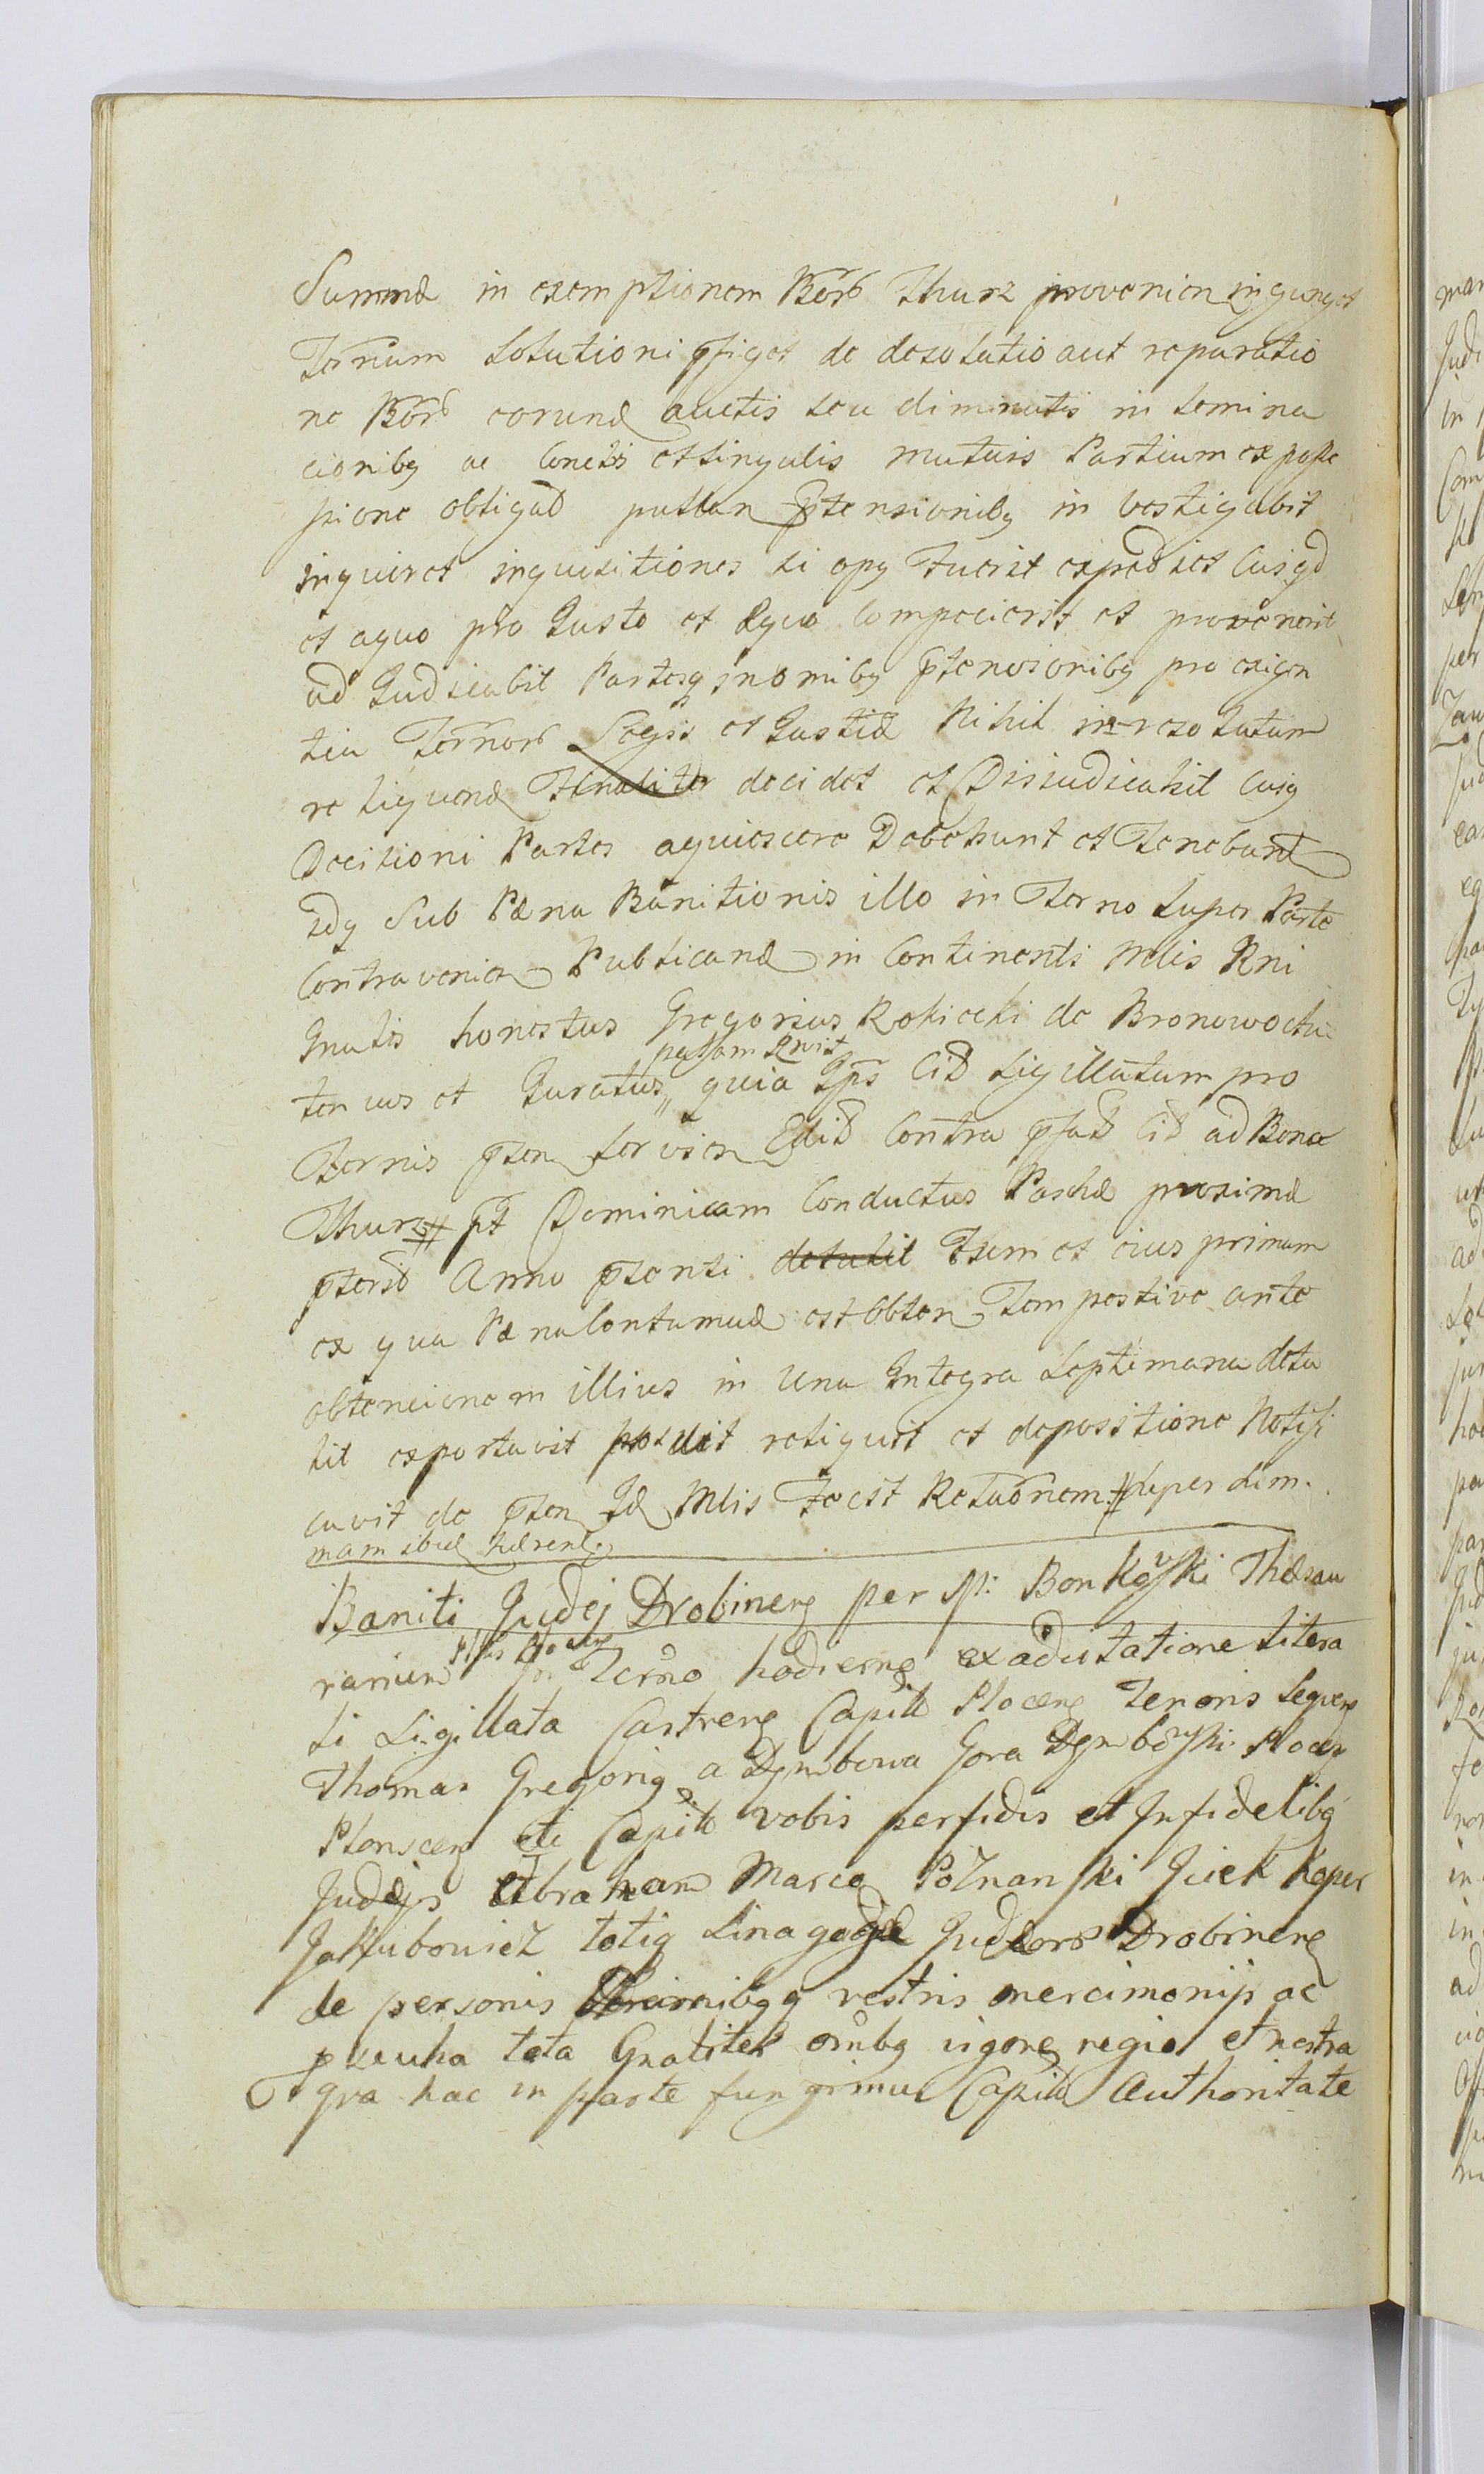 Summæ in exemptionem Bor Thurz provenien injunget
Ternum Solutioni pfiget de desolatio aut reparatio
ne Bor eorund auctis seu diminutis in semina
cionibg ac Conctis et singulis mutuis Partium ex posse
ssione obligad pullan ptensionibg in vestigabit
inquiret inquisitiones si opg Fuerit expediet Cuiqd
et aquo pro Justo et Equo Compecierit et provenerit
ad Judicabit Partesq in omibg ptensionibg pro exigen
tia Ternor Legis et Justiæ Nihil in resolutum
reliquend Finaliter decidet et Disiudicabit Cuig
Decisioni Partes aquiescere Debebunt et Tenebunt
idq Sub Pæna Banitionis illo in Terno super Parte
Contravenien Publicand in Continenti Mlis Rni
Gnalis honestus Gregorius Rokicki de Bronowo
tenus et Juratus quia Cit Sigillatum pro
palam
Ternis pten servien Edit Contra pfat Cit ad Bona
Thurz pt Dominicam Conductus Paschæ proximæ
pterit Anno ptenti detulit Tsum et eius primum
ex qua Pæna Contumuæ est obten Tempestive ante
obtencionem illius in Una Integra Septimana detu
lit exportavit reliquit et depositione Notifi
cavit de pten Id Mlis Fecit Relaõnem super sum.
mam ibid
Baniti Judej Drobineng per M: Bonkowski Thesau
rarium In Terño hodierne ex adcitatione litera
li Sigillata Castreng Capitl Ploceng Tenoris Sequeng
Thomas Gregorig a Dembowa Gora Dembowski Ploceng
Plonsceng Capitl vobis perfidis et Infidelibg
Judæis Abraham Marco Poznanski Jcick
Jakubowicz totig Sinagogæ Judæor Drobineng
de personis vestris mercimonijs ac
tota Gnaliter omibg vigore regia et nostra
qva hac in parte fungimur Capitl Authoritate